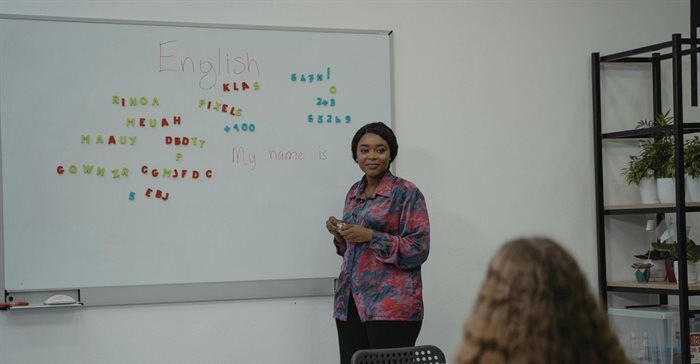 English
KLAS
RINOA
PIXELS
MEUAH
+400
MAAUY
DBDTT
P
GQWNZR
CGMJFDC
5
EBJ
647N
0
2+3
65269
My name is